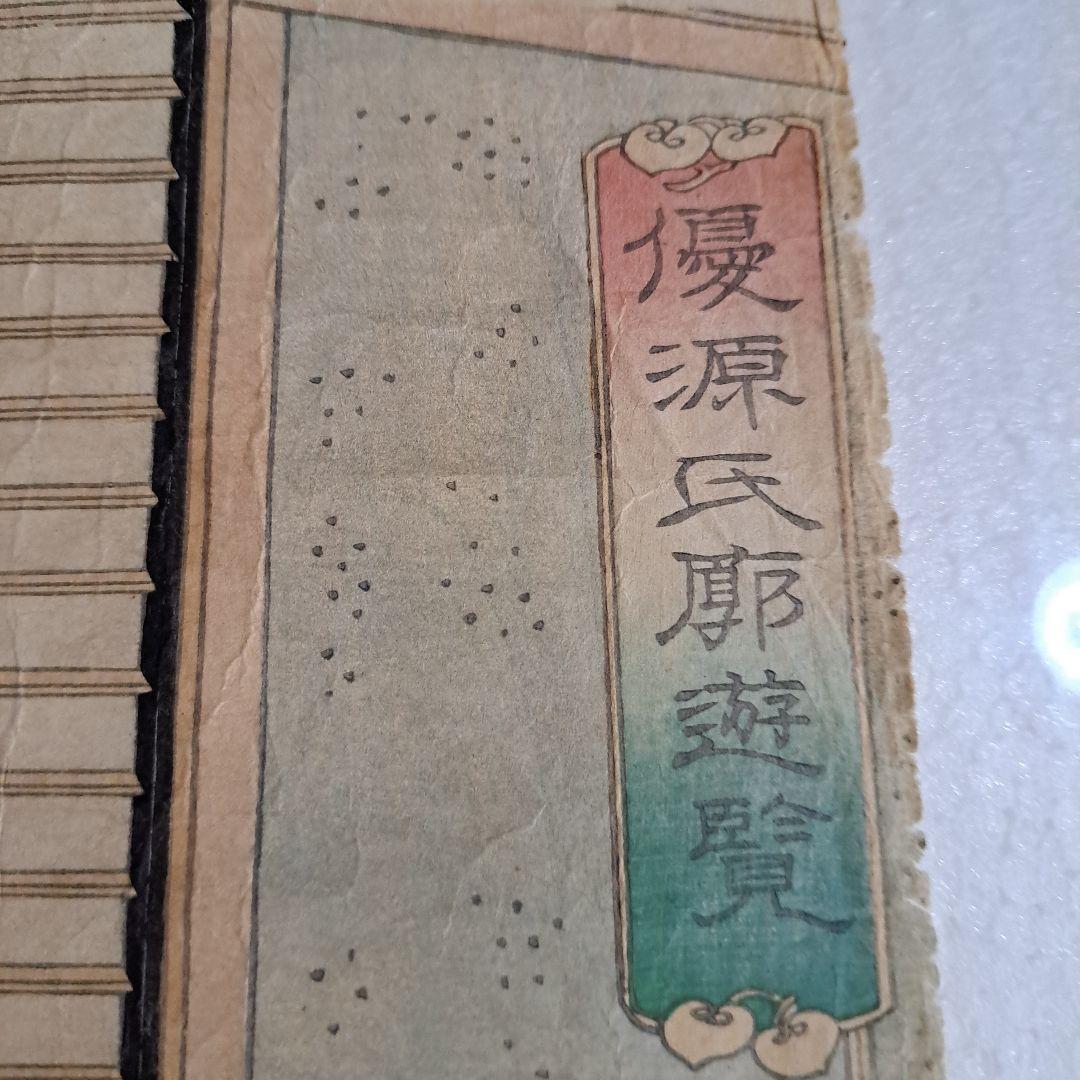 優源氏廓遊覧